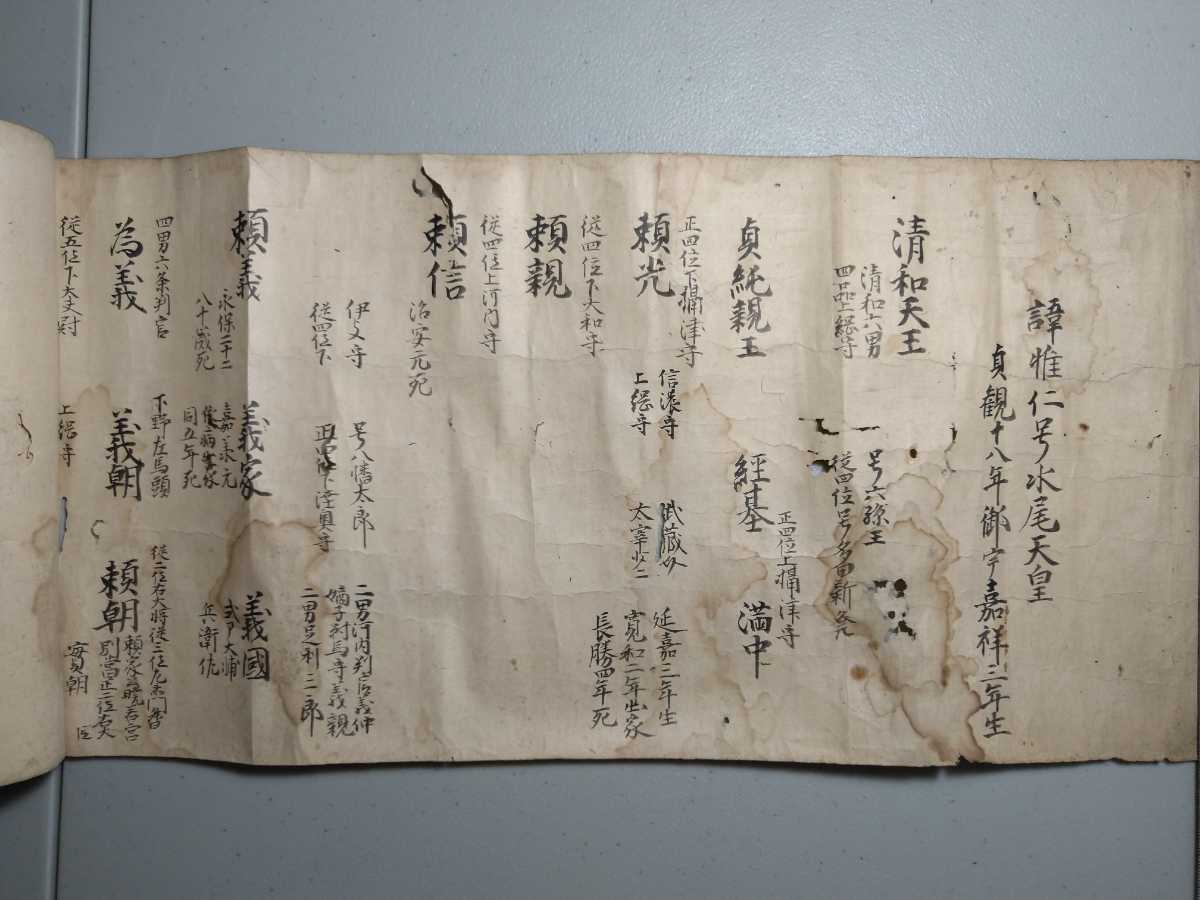 諱惟仁号水尾天皇
貞観十八年御宇嘉祥三年生
清和天王
清和六男
四品上総守
号六孫王
従四位号多田新発
貞純親王
経基
正四位上摂津守
満中
正四位下摂津守
頼光
信濃守
上総守
武蔵守
太宰少二
延嘉三年生
寛和二年出家
長勝四年死
従四位下大和守
頼親
従四位上河内守
頼信
治安元死
伊与守
従四位下
号八幡太郎
正四位下陸奥守
二男河内判官義仲
嫡子対馬守義親
二男足利三郎
頼義
永保二十二
八十歳死
義家
嘉承元
依病出家
同五年死
義國
式戸大輔
兵衛佐
四男六条判官
為義
下野左馬頭
義朝
従二位右大将従三位左衛門督
頼朝
頼家
別當正二位右大臣
実朝
従五位下大夫尉
上総守